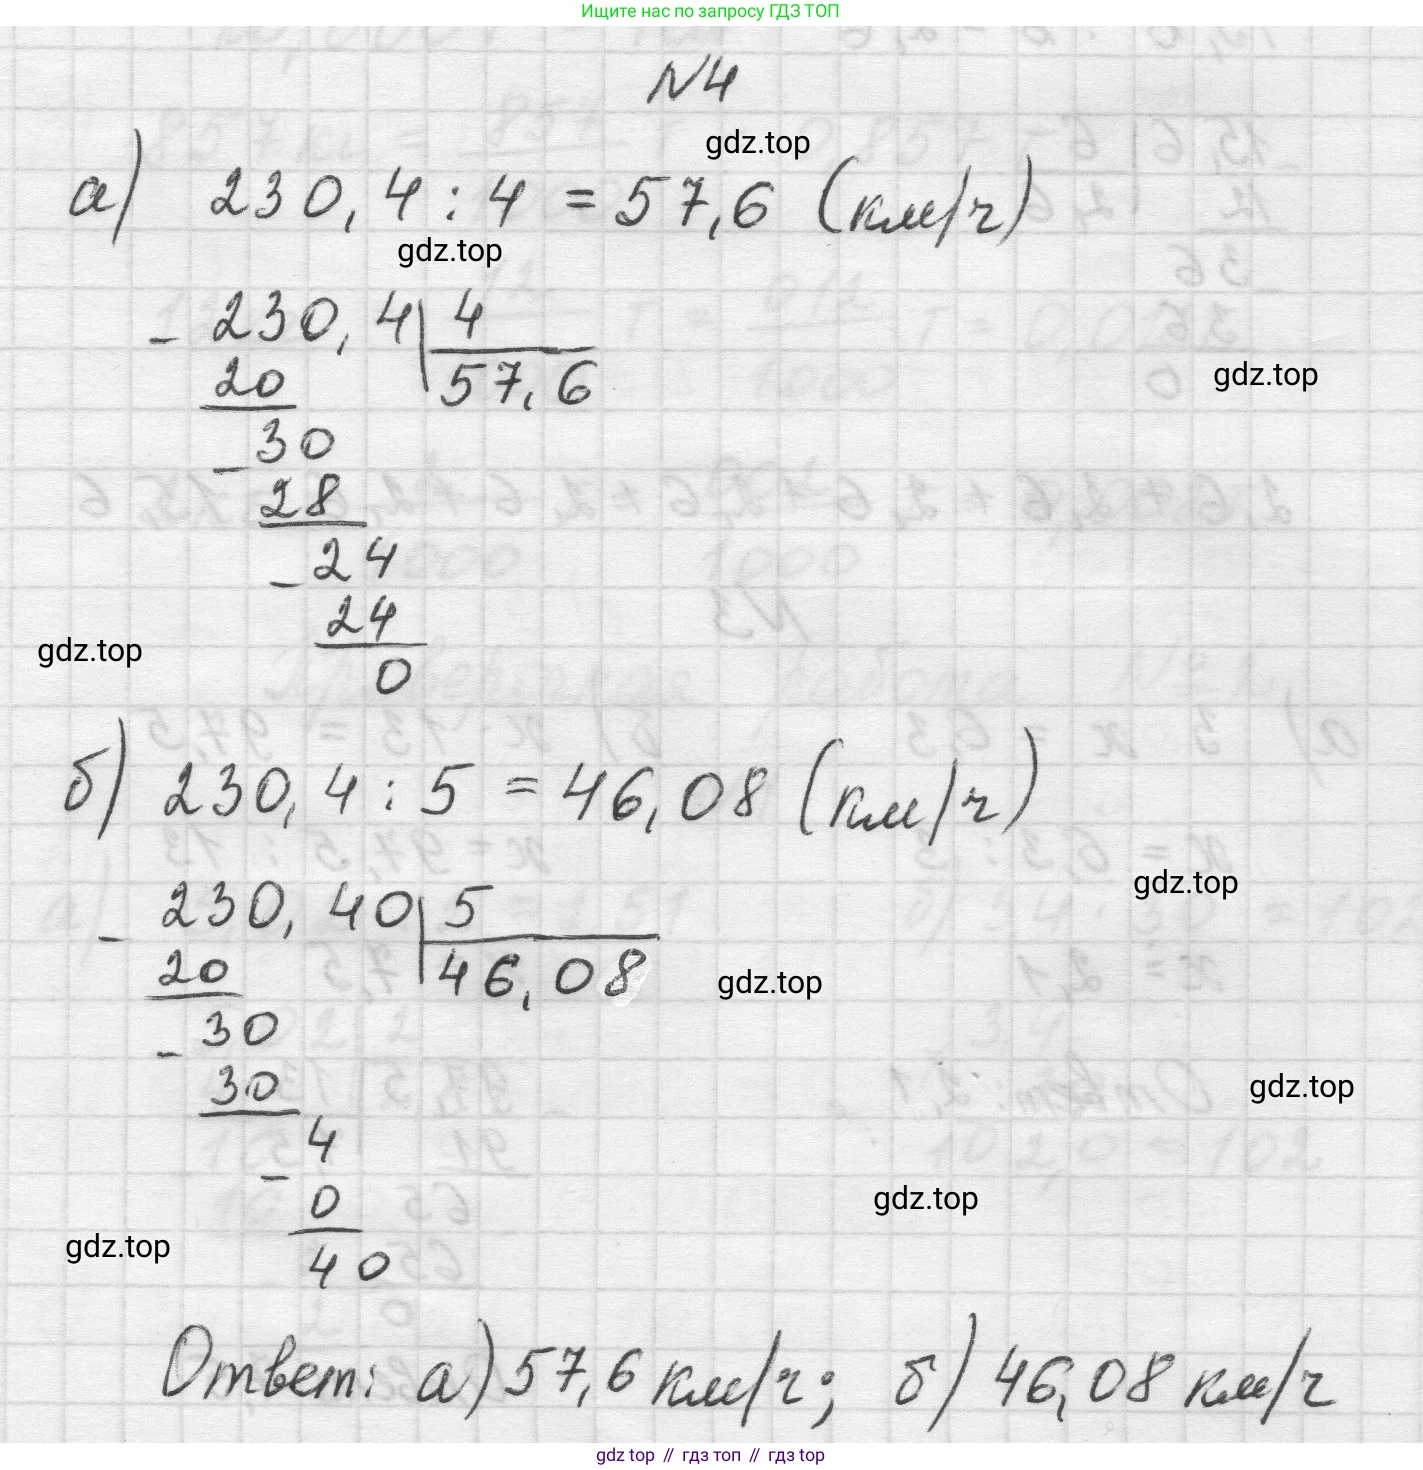 Ищите нас по запросу ГДЗ ТОП
№4
gdz.top
а) 230,4 : 4 = 57,6 (км/ч)
gdz.top
- 230,4 | 4
20 | 57,6
gdz.top
- 30
28
- 24
24
gdz.top
0
б) 230,4 : 5 = 46,08 (км/ч)
gdz.top
- 230,40 | 5
20 | 46,08
gdz.top
- 30
30
gdz.top
- 4
0
gdz.top
gdz.top
40
Ответ: а) 57,6 км/ч; б) 46,08 км/ч
gdz top // гдз топ // гдз top